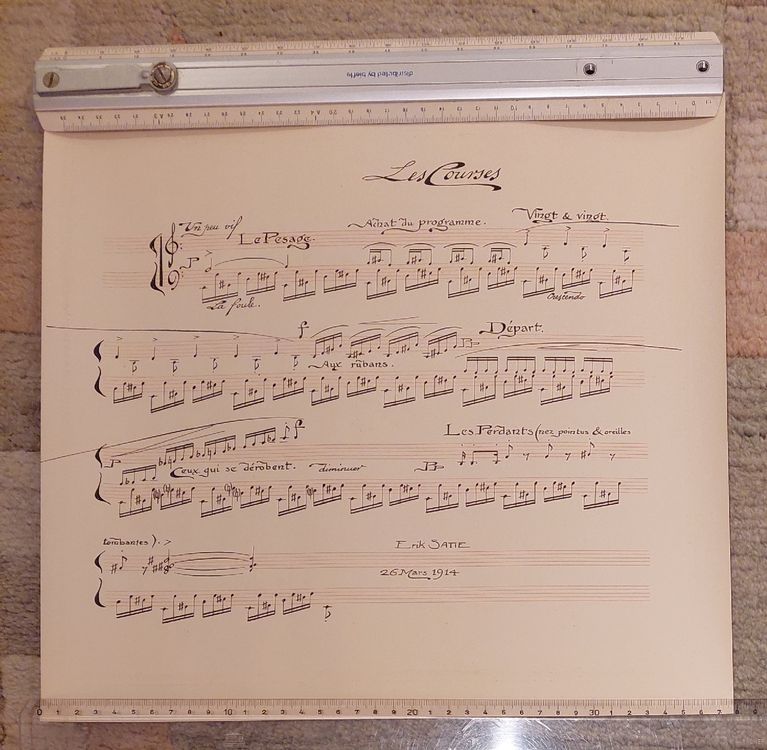 distributed by
Les Courses
Un peu vif
Le Pesage.
Achat du programme.
Vingt & vingt.
P
La foule.
Crescendo
f
Départ.
Aux rubans.
f
Les Perdants (nez pointus & oreilles
P
Ceux qui se dérobent.
diminuer
tombantes).
Erik SATIE
26 Mars 1914
0 1 2 3 4 5 6 7 8 9 10 1 2 3 4 5 6 7 8 9 20 1 2 3 4 5 6 7 8 9 30 1 2 3 4 5 6 7 8 9